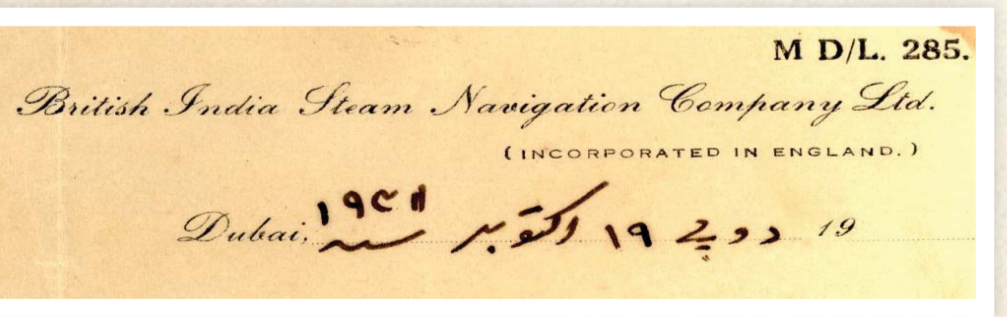 M D/L. 285.
British India Steam Navigation Company Ltd.
(INCORPORATED IN ENGLAND.)
Dubai, دوبے ١٩ اکتوبر سنہ 19